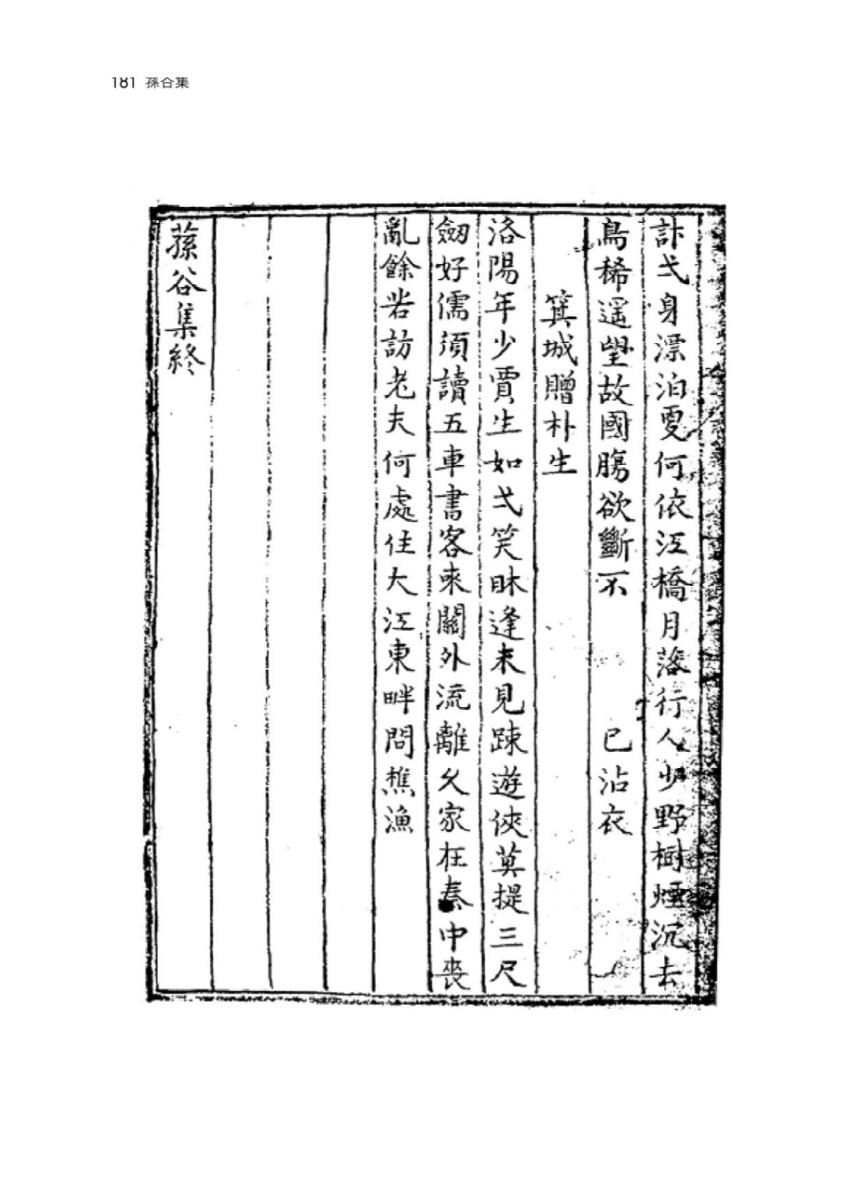 181 蓀谷集
訃弌身漂泊更何依江橋月落行人少野樹煙沉去
鳥稀遥望故國腸欲斷不 已沾衣
箕城贈朴生
洛陽年少賈生如弌笑眛逢末見踈遊俠莫提三尺
劒好儒須讀五車書客來關外流離久家在秦中喪
亂餘若訪老夫何處住大江東畔問樵漁
蓀谷集終